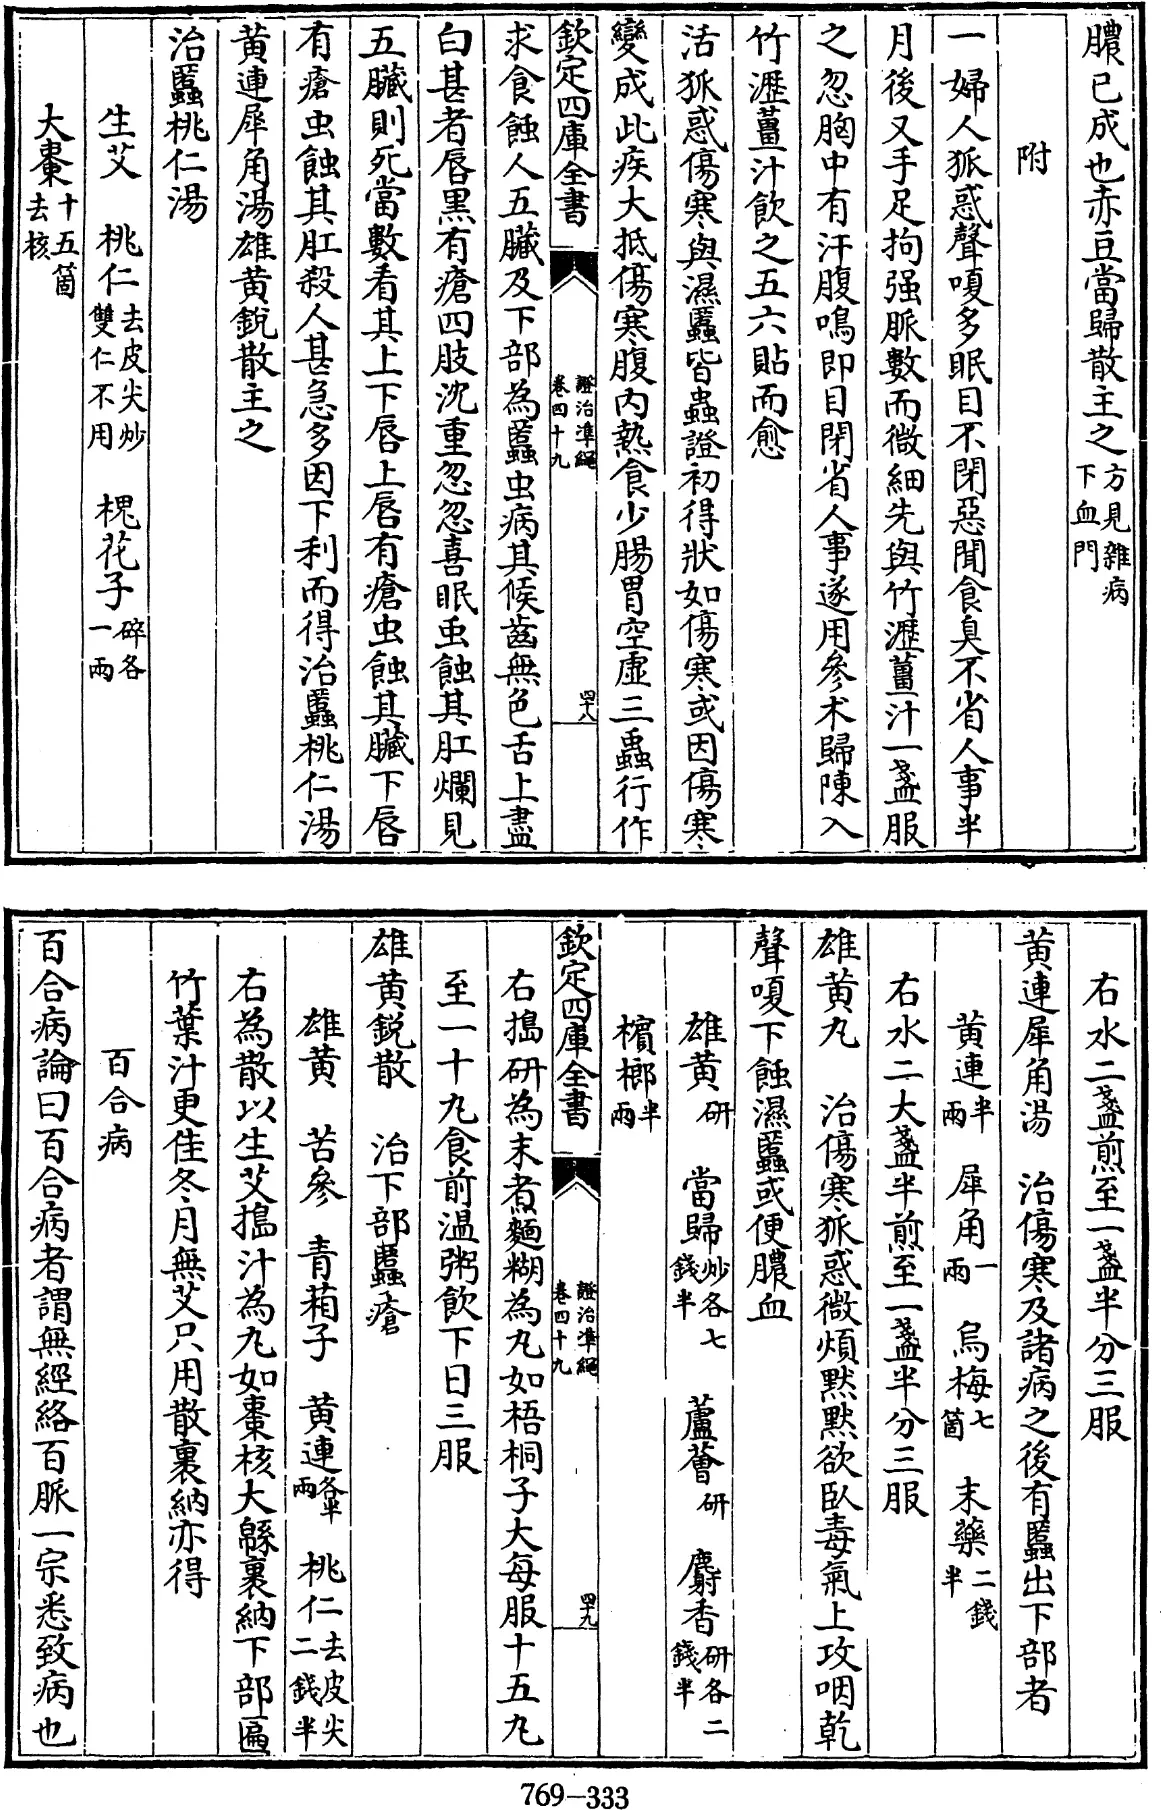 膿已成也赤豆當歸散主之方見雜病下血門
附
一婦人狐惑聲嗄多眠目不閉惡聞食臭不省人事半
月後又手足拘强脈數而微細先與竹瀝薑汁一盞服
之忽胸中有汗腹鳴即目閉省人事遂用參术歸陳入
竹瀝薑汁飲之五六貼而愈
活狐惑傷寒與濕䘌皆蟲證初得狀如傷寒或因傷寒
變成此疾大抵傷寒腹内熱食少腸胃空虛三蟲行作
欽定四庫全書
證治準繩
卷四十九
四十八
求食蝕人五臟及下部為䘌虫病其候齒無色舌上盡
白甚者唇黑有瘡四肢沈重忽忽喜眠虫蝕其肛爛見
五臟則死當數看其上下唇上唇有瘡虫蝕其臟下唇
有瘡虫蝕其肛殺人甚急多因下利而得治䘌桃仁湯
黄連犀角湯雄黄鋭散主之
治䘌桃仁湯
生艾 桃仁去皮尖炒雙仁不用 槐花子碎各一兩
大棗十五箇去核
右水二盞煎至一盞半分三服
黄連犀角湯 治傷寒及諸病之後有䘌出下部者
黄連半兩 犀角一兩 烏梅七箇 末藥二錢半
右水二大盞半煎至一盞半分三服
雄黄丸 治傷寒狐惑微煩默默欲臥毒氣上攻咽乾
聲嗄下蝕濕䘌或便膿血
雄黄研 當歸炒各七錢半 蘆薈研 麝香研各二錢半
檳榔半兩
欽定四庫全書
證治準繩
卷四十九
四十九
右搗研為末煮麵糊為丸如梧桐子大每服十五丸
至一十丸食前温粥飲下日三服
雄黄鋭散 治下部䘌瘡
雄黄 苦參 青葙子 黄連各半兩 桃仁去皮尖二錢半
右為散以生艾搗汁為丸如棗核大緜裹納下部匾
竹葉汁更佳冬月無艾只用散裹納亦得
百合病
百合病論曰百合病者謂無經絡百脈一宗悉致病也
769-333